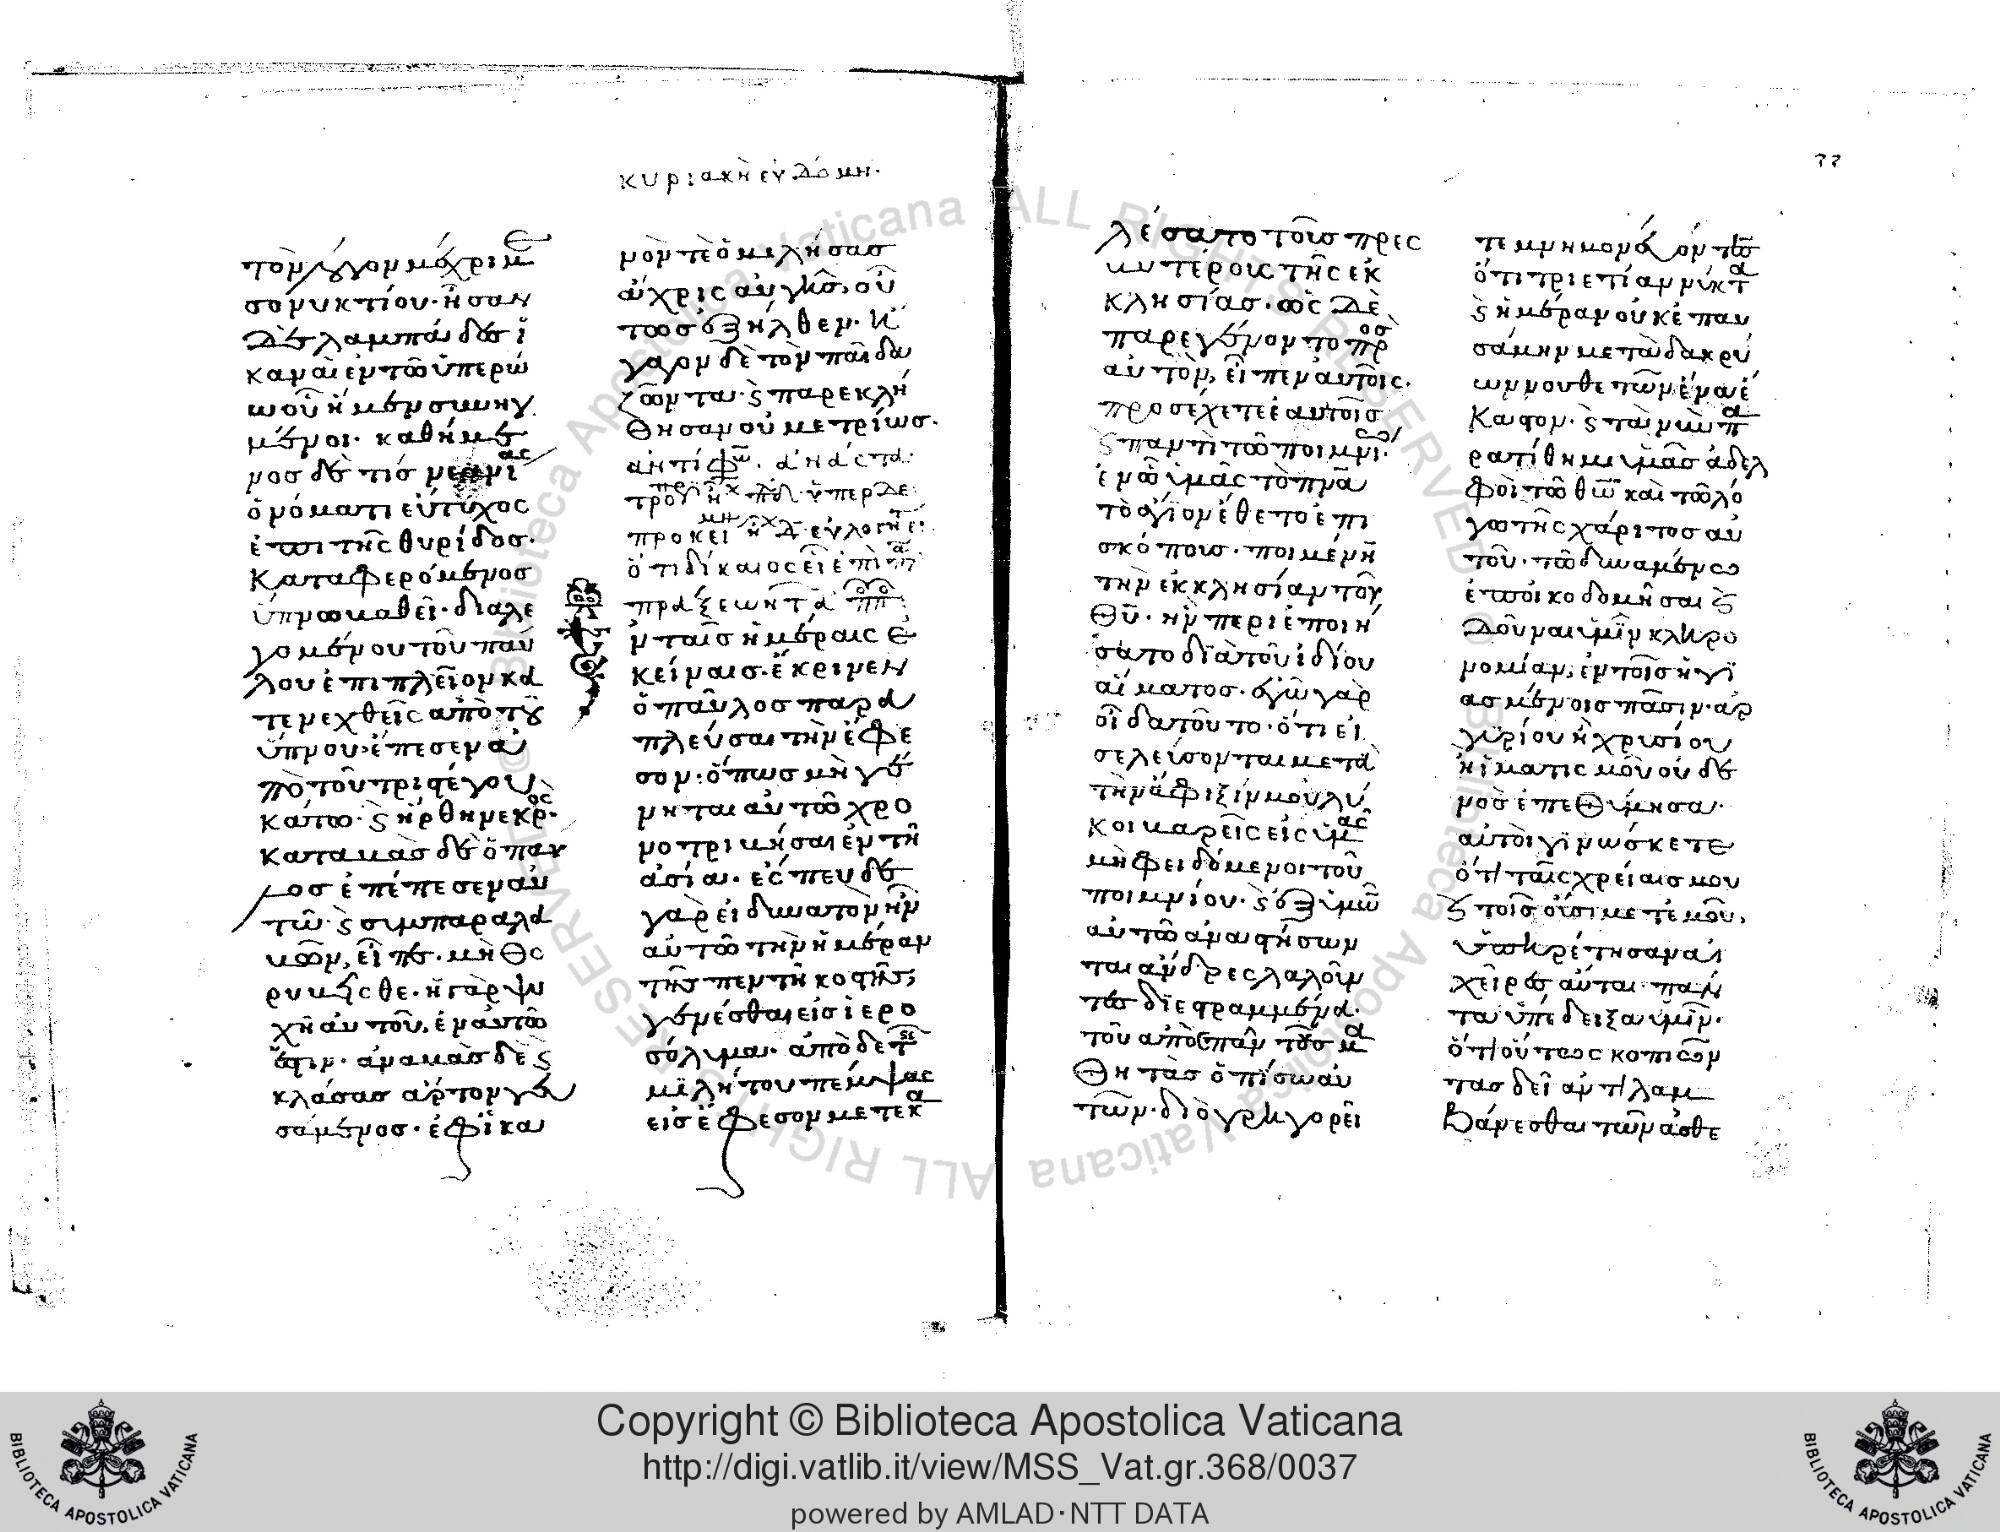 κυριακὴ εὐδόμη.
τὸν λόγον μέχρι με
σονυκτίου· ἦσαν
δὲ λαμπάδες ἱ
καναὶ ἐν τῶ ὑπερώ
ω οὗ ἦμεν συνηγ
μένοι· καθήμε
νος δέ τις νεανίας
ὀνόματι εὔτυχος
ἐπὶ τῆς θυρίδος·
καταφερόμενος
ὕπνω βαθεῖ· διαλε
γομένου τοῦ παύ
λου ἐπὶ πλεῖον κα
τενεχθεὶς ἀπὸ τοῦ
ὕπνου· ἔπεσεν ἀ
πὸ τοῦ τριστέγου
κάτω· ϗ ἤρθη νεκρός·
καταβὰς δὲ ὁ παῦ
λος ἐπέπεσεν αὐ
τῶ· ϗ συμπαραλα
βὼν, εἶπε· μὴ θο
ρυβῆσθε· ἡ γὰρ ψυ
χὴ αὐτοῦ, ἐν αὐτῶ
ἐστιν· ἀναβὰς δὲ ϗ
κλάσας ἄρτον γευ
σάμενος· ἐφ' ἱκα
νόν τε ὁμιλήσας
ἄχρις αὐγῆς, οὕ
τως ἐξῆλθεν· ἤ
γαγον δὲ τὸν παῖδα
ζῶντα· ϗ παρεκλή
θησαν οὐ μετρίως·
ὅτι δίκαιος εἶ ἐπὶ π
πράξεων τ ἀπ
ἐν ταῖς ἡμέραις ἐ
κείναις· ἔκρινεν
ὁ παῦλος παρα
πλεῦσαι τὴν ἔφε
σον· ὅπως μὴ γέ
νηται αὐτῶ χρο
νοτριβῆσαι ἐν τῆ
ἀσία· ἔσπευδε
γὰρ εἰ δυνατὸν ἦν
αὐτῶ τὴν ἡμέραν
τῆς πεντηκοστῆς
γενέσθαι εἰς ἱερο
σόλυμα· ἀπὸ δὲ τῆς
μιλήτου πέμψας
εἰς ἔφεσον μετεκα
77
λέσατο τοὺς πρεσ
βυτέρους τῆς ἐκ
κλησίας· ὡς δὲ
παρεγένοντο πρὸς
αὐτὸν, εἶπεν αὐτοῖς·
προσέχετε ἑαυτοῖς
ϗ παντὶ τῶ ποιμνίω·
ἐν ὧ ὑμᾶς τὸ πνα
τὸ ἅγιον ἔθετο ἐπι
σκόπους· ποιμένειν
τὴν ἐκκλησίαν τοῦ
θυ· ἣν περιεποιή
σατο διὰ τοῦ ἰδίου
αἵματος· ἐγὼ γὰρ
οἶδα τοῦτο· ὅτι εἰ
σελεύσονται μετὰ
τὴν ἄφιξίν μου λύ
κοι βαρεῖς εἰς ὑμᾶς
μὴ φειδόμενοι τοῦ
ποιμνίου· ϗ ἐξ ὑμῶν
αὐτῶ ἀναστήσων
ται ἄνδρες λαλοῦν
τες διεστραμμένα·
τοῦ ἀποσπᾶν τοὺς μα
θητὰς ὀπίσω αὐ
τῶν· διὸ γρηγορεῖ
τε μνημονεύοντες
ὅτι τριετίαν νύκτα
ϗ ἡμέραν οὐκ ἐπαυ
σάμην μετὰ δακρύ
ων νουθετῶν ἕνα ἕ
καστον· ϗ τὰ νῦν πα
ρατίθημι ὑμᾶς ἀδελ
φοὶ τῶ θω καὶ τῶ λό
γω τῆς χάριτος αὐ
τοῦ· τῶ δυναμένω
ἐποικοδομῆσαι ϗ
δοῦναι ὑμῖν κληρο
νομίαν, ἐν τοῖς ἡγι
ασμένοις πᾶσιν· ἀρ
γυρίου ἢ χρυσίου
ἢ ἱματισμοῦ οὐδε
νὸς ἐπεθύμησα·
αὐτοὶ γινώσκετε
ὅτι ταῖς χρείαις μου
ϗ τοῖς οὖσι μετ' ἐμοῦ,
ὑπηρέτησαν αἱ
χεῖρες αὗται· πάν
τα ὑπέδειξα ὑμῖν·
ὅτι οὕτως κοπιῶν
τας δεῖ ἀντιλαμ
βάνεσθαι τῶν ἀσθε
Copyright © Biblioteca Apostolica Vaticana
http://digi.vatlib.it/view/MSS_Vat.gr.368/0037
powered by AMLAD·NTT DATA
BIBLIOTECA APOSTOLICA VATICANA
BIBLIOTECA APOSTOLICA VATICANA